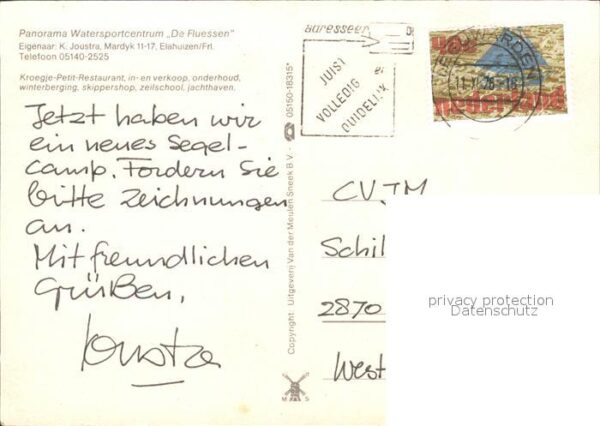 Panorama Watersportcentrum „De Fluessen"
Eigenaar: K. Joustra, Mardyk 11-17, Elahuizen/Frl.
Telefoon 05140-2525
Kroegje-Petit-Restaurant, in- en verkoop, onderhoud,
winterberging, skippershop, zeilschool, jachthaven.
Jetzt haben wir
ein neues Segel-
camp. Fordern Sie
bitte Zeichnungen
an.
Mit freundlichen
Grüßen,
Joustra
Copyright: Uitgeverij Van der Meulen Sneek B.V. - 05150-18315*
M S
adresseer
JUIST
VOLLEDIG
en
DUIDELIJK
LEEUWARDEN
nederland
CVJM
Schil
2870
West
privacy protection
Datenschutz